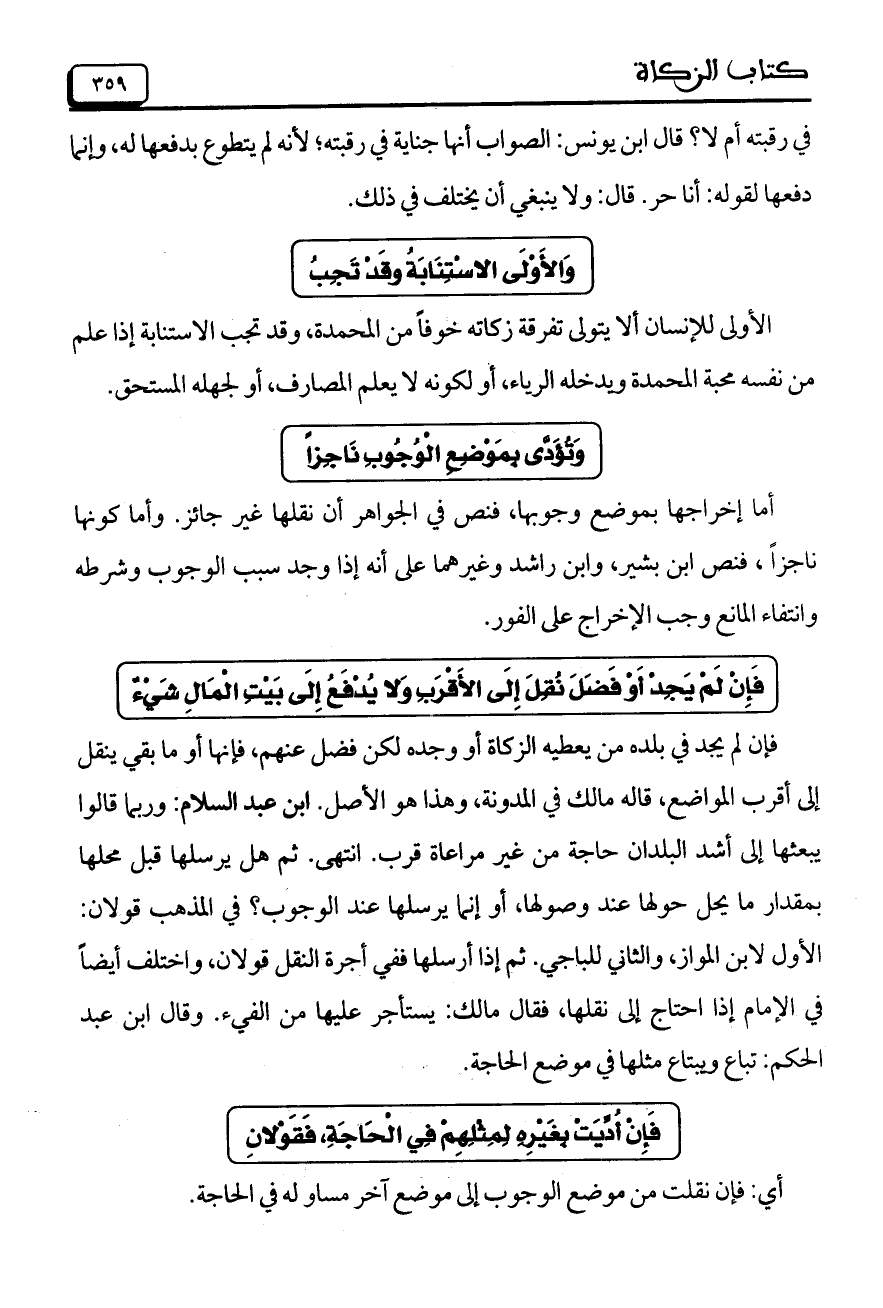 كتاب الزكاة
٣٥٩
في رقبته أم لا؟ قال ابن يونس: الصواب أنها جناية في رقبته؛ لأنه لم يتطوع بدفعها له، وإنما
دفعها لقوله: أنا حر. قال: ولا ينبغي أن يختلف في ذلك.
وَالأَوْلَى الاسْتِنَابَةُ وقَدْ تَجِبُ
الأولى للإنسان ألا يتولى تفرقة زكاته خوفاً من المحمدة، وقد تجب الاستنابة إذا علم
من نفسه محبة المحمدة ويدخله الرياء، أو لكونه لا يعلم المصارف، أو لجهله المستحق.
وَتُؤَدَّى بِمَوْضِعِ الْوُجُوبِ نَاجِزاً
أما إخراجها بموضع وجوبها، فنص في الجواهر أن نقلها غير جائز. وأما كونها
ناجزاً، فنص ابن بشير، وابن راشد وغيرهما على أنه إذا وجد سبب الوجوب وشرطه
وانتفاء المانع وجب الإخراج على الفور.
فَإِنْ لَمْ يَجِدْ أَوْ فَضَلَ نُقِلَ إِلَى الأَقْرَبِ وَلا يُدْفَعُ إِلَى بَيْتِ الْمَالِ شَيْءٌ
فإن لم يجد في بلده من يعطيه الزكاة أو وجده لكن فضل عنهم، فإنها أو ما بقي ينقل
إلى أقرب المواضع، قاله مالك في المدونة، وهذا هو الأصل. ابن عبد السلام: وربما قالوا
يبعثها إلى أشد البلدان حاجة من غير مراعاة قرب. انتهى. ثم هل يرسلها قبل محلها
بمقدار ما يحل حولها عند وصولها، أو إنما يرسلها عند الوجوب؟ في المذهب قولان:
الأول لابن المواز، والثاني للباجي. ثم إذا أرسلها ففي أجرة النقل قولان، واختلف أيضاً
في الإمام إذا احتاج إلى نقلها، فقال مالك: يستأجر عليها من الفيء. وقال ابن عبد
الحكم: تباع ويبتاع مثلها في موضع الحاجة.
فَإِنْ أُدِّيَتْ بِغَيْرِهِ لِمِثْلِهِمْ فِي الْحَاجَةِ، فَقَوْلانِ
أي: فإن نقلت من موضع الوجوب إلى موضع آخر مساو له في الحاجة.